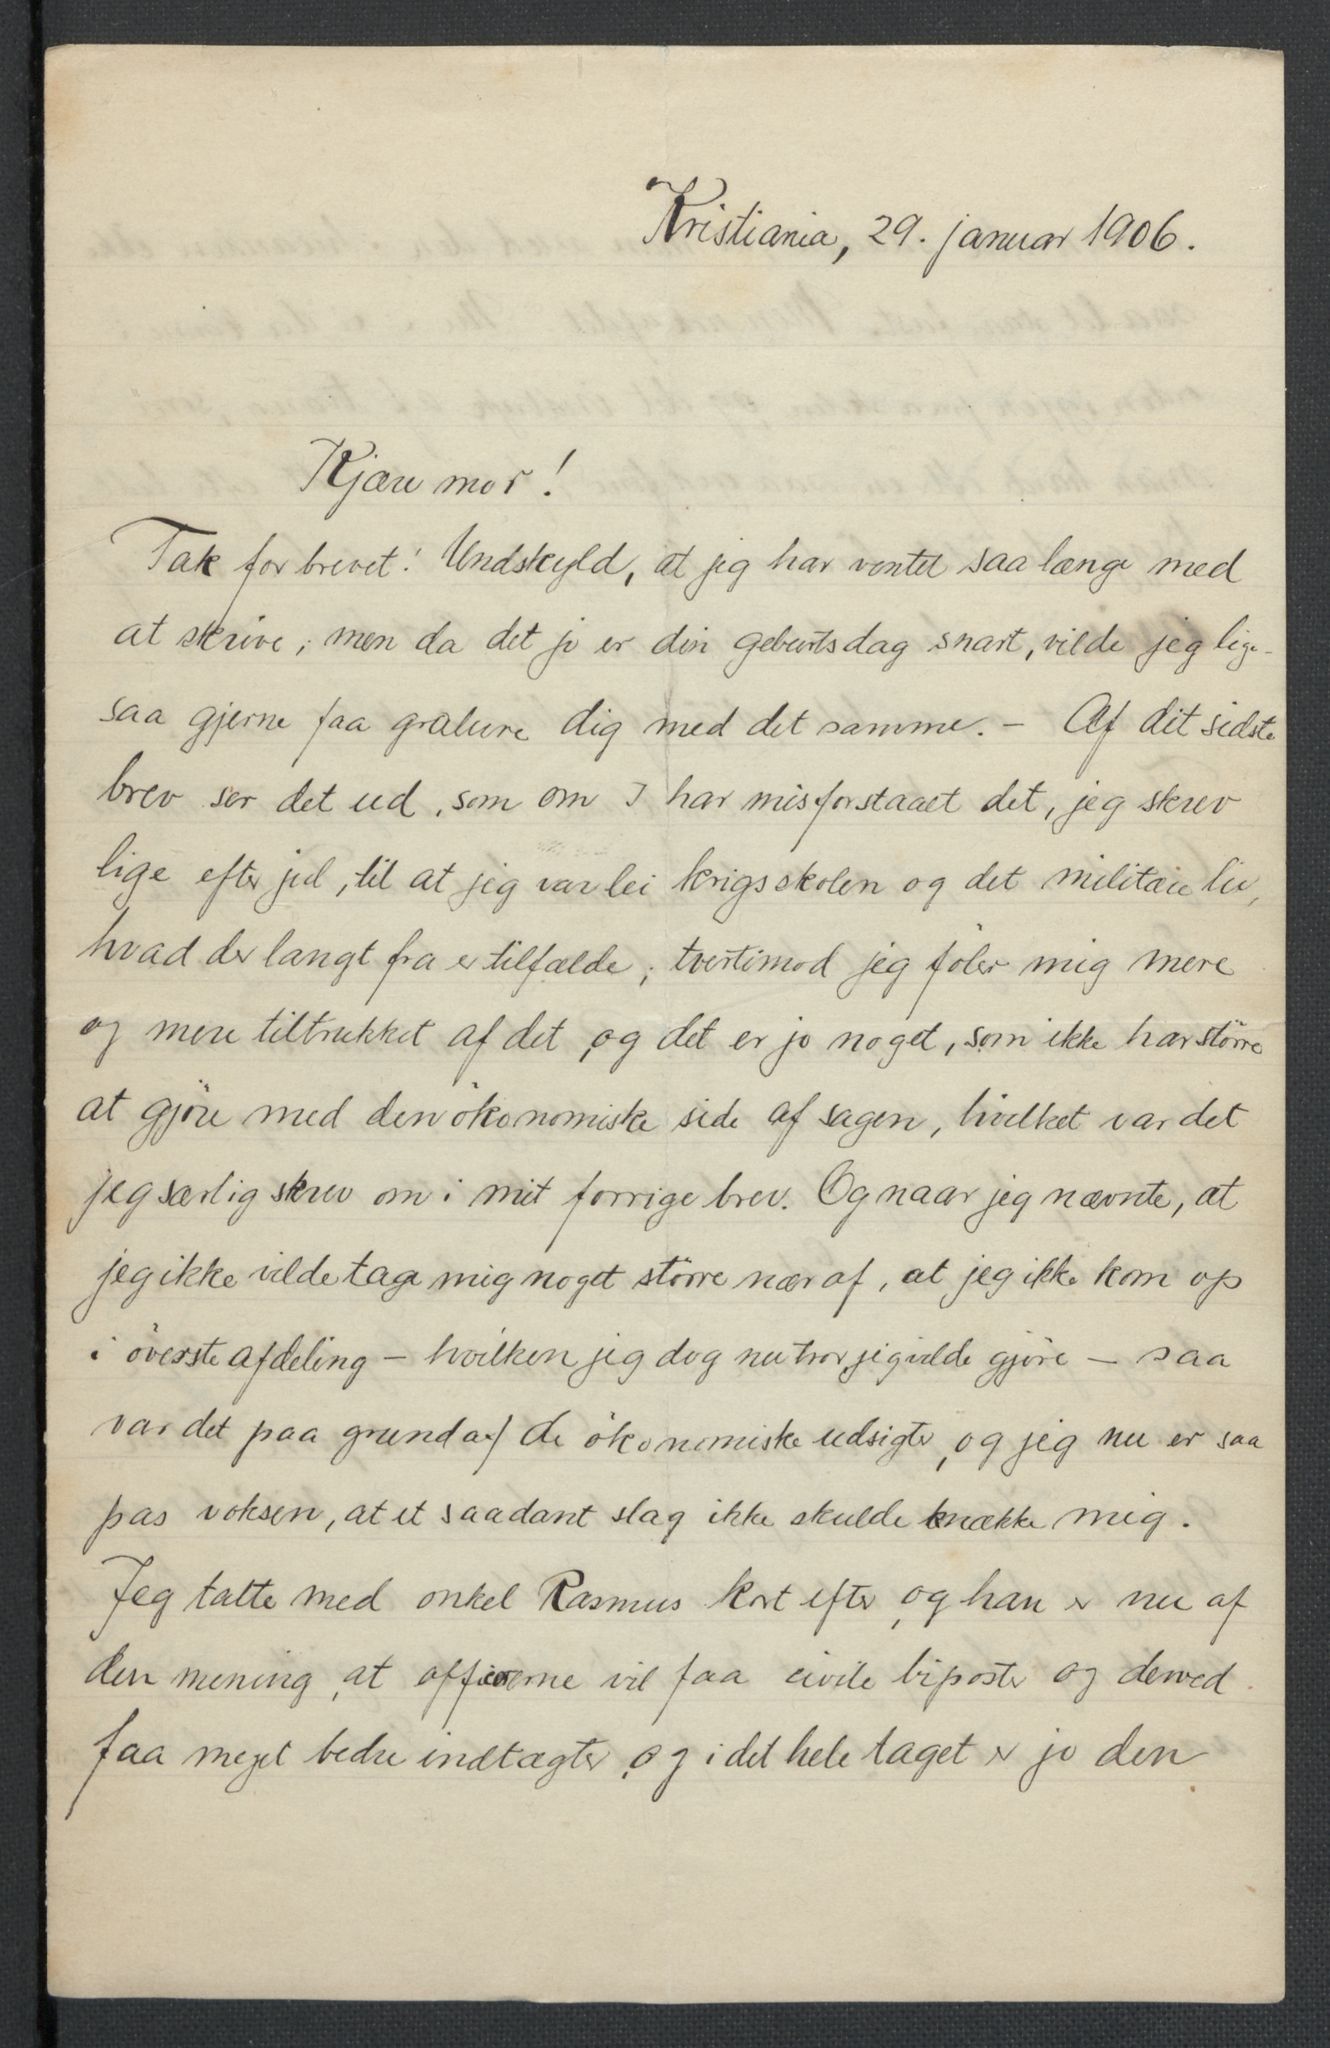 Kristiania, 29. januar 1906.
Kjære mor!
Tak for brevet! Undskyld, at jeg har ventet saa længe med
at skrive; men da det jo er din geburtsdag snart, vilde jeg lige-
saa gjerne faa gratulere dig med det samme. – Af dit sidste
brev ser det ud, som om I har misforstaaet det, jeg skrev
lige efter jul, til at jeg var lei krigsskolen og det militære liv,
hvad der langt fra er tilfælde; tvertimod jeg föler mig mere
og mere tiltrukket af det, og det er jo noget, som ikke har större
at gjöre med den ökonomiske side af sagen, hvilket var det
jeg særlig skrev om i mit forrige brev. Og naar jeg nævnte, at
jeg ikke vilde tage mig noget större nær af, at jeg ikke kom op
i överste afdeling – hvilken jeg dog nu tror jeg vilde gjöre – saa
var det paa grund af de ökonomiske udsigter, og jeg nu er saa
pas voksen, at et saadant slag ikke skulde knække mig.
Jeg talte med onkel Rasmus kort efter, og han er nu af
den mening, at officererne vil faa civile biposter og derved
faa meget bedre indtægter, og i det hele taget er jo den